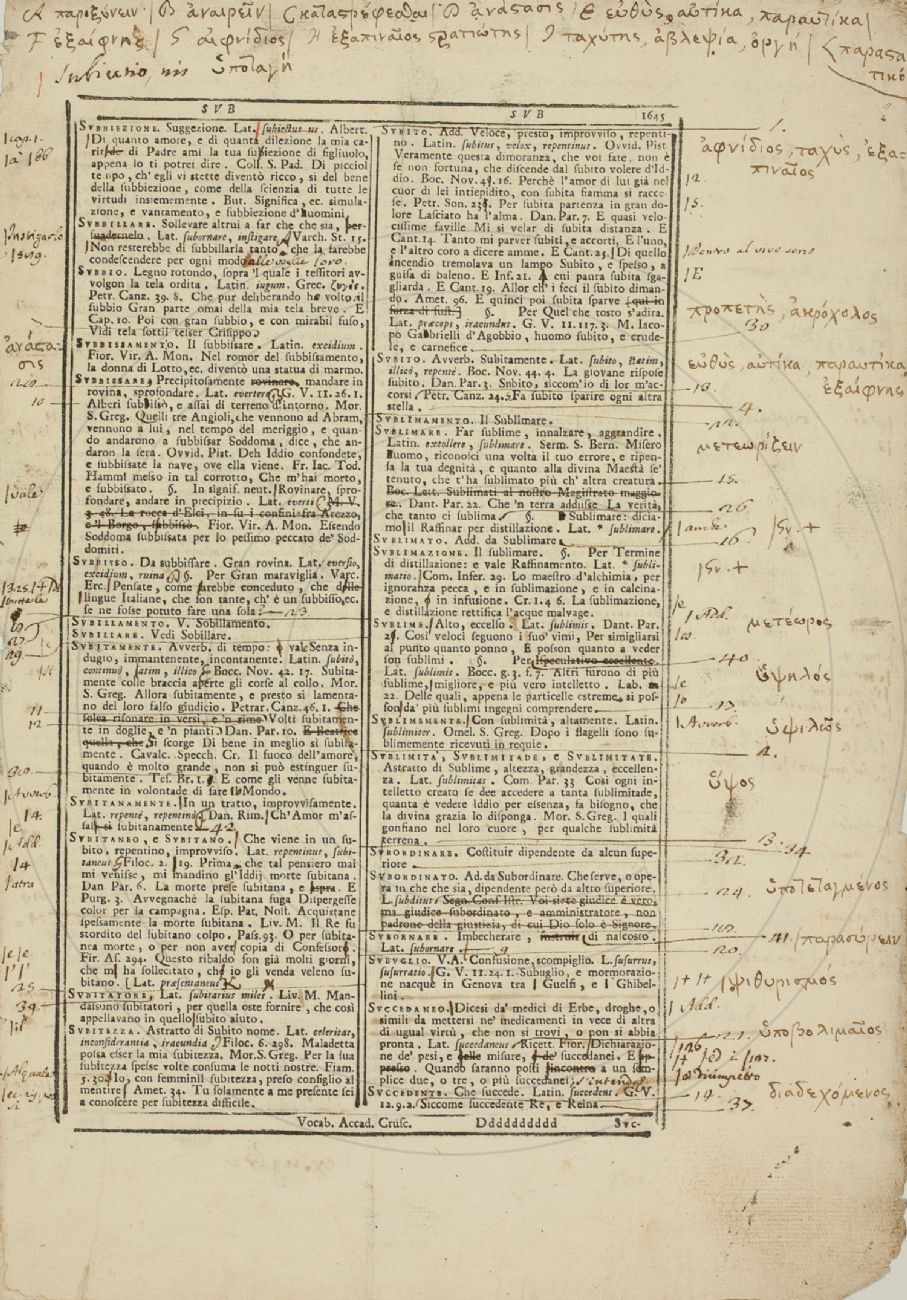 A παροξύνειν | B ἀναιρεῖν | C καταστρέφεσθαι | D ἀνάστασις | E εὐθὺς, αὐτίκα, παραυτίκα |
F ἐξαίφνης | G αἰφνίδιος | H ἐξαπιναῖος στρατιώτης | I ταχύτης, ἀβλεψία, ὀργή |
ὑποταγή
SVB
SVB 1645
SVBBIEZIONE. Suggezione. Lat. subiectus us. Albert.
Di quanto amore, e di quanta dilezione la mia ca-
di Padre ami la tua subiezione di figliuolo,
appena lo ti potrei dire. Coll. S. Pad. Di picciol
tempo, ch'egli vi stette diventò ricco, sì del bene
della subbiezione, come della scienzia di tutte le
virtudi insiememente. But. Significa, ec. simula-
zione, e vantamento, e subbiezione d'huomini
SVBBILLARE. Sollevare altrui a far che che sia,
Lat. subornare, instigare. Varch. St. 15.
Non resterebbe di subbillarla tanto, che la farebbe
condescendere per ogni modo alle voglie loro.
SVBBIO. Legno rotondo, sopra 'l quale i tessitori av-
volgon la tela ordita. Latin. iugum. Grec. ζυγός.
Petr. Canz. 39. 8. Che pur deliberando ho volto il
subbio Gran parte omai della mia tela breve. E
Cap. 10. Poi con gran subbio, e con mirabil fuso,
Vidi tela sottil tesser Crisippo.
SVBBISSAMENTO. Il subbissare. Latin. excidium.
Fior. Vir. A. Mon. Nel romor del subbissamento,
la donna di Lotto, ec. diventò una statua di marmo.
SVBBISSARE. Precipitosamente rovinare, mandare in
rovina, sprofondare. Lat. evertere. G. V. 11. 26. 1.
Alberi subbissò, e assai di terreno d'intorno. Mor.
S. Greg. Quelli tre Angioli, che vennono ad Abram,
vennono a lui, nel tempo del meriggio, e quan-
do andarono a subbissar Soddoma, dice, che an-
daron la sera. Ovvid. Pist. Deh Iddio confondete,
e subbissate la nave, ove ella viene. Fr. Iac. Tod.
Hammi messo in tal corrotto, Che m'hai morto,
e subbissato. §. In signif. neut. Rovinare, spro-
fondare, andare in precipizio. Lat. everti. M. V.
3. 48. La rocca d'Elci, in su i confini fra Arezzo,
e 'l Borgo, subbissò. Fior. Vir. A. Mon. Essendo
Soddoma subbissata per lo pessimo peccato de' Sod-
domiti.
SVBBISSO. Da subbissare. Gran rovina. Lat. eversio,
excidium, ruina. §. Per Gran maraviglia. Varc.
Erc. Pensate, come sarebbe conceduto, che delle
lingue Italiane, che son tante, ch'è un subbisso, ec.
se ne fosse potuto fare una sola. 23
SVBILLAMENTO. V. Sobillamento.
SVBILLARE. Vedi Sobillare.
SVBITAMENTE. Avverb. di tempo: vale Senza in-
dugio, immantenente, incontanente. Latin. subitò,
continuò, statim, illico. Bocc. Nov. 42. 17. Subita-
mente colle braccia aperte gli corse al collo. Mor.
S. Greg. Allora subitamente, e presto si lamenta-
no del loro falso giudicio. Petrar. Canz. 46. 1. Che
solea risonare in versi, e 'n rime Volti subitamen-
te in doglie, e 'n pianti. Dan. Par. 10. E Beatrice
quella, che sì scorge Di bene in meglio sì subita-
mente. Cavalc. Specch. Cr. Il fuoco dell'amore,
quando è molto grande, non si può estinguer su-
bitamente. Tes. Br. 1. E come gli venne subita-
mente in volontade di fare Mondo.
SVBITANAMENTE. In un tratto, improvvisamente.
Lat. repentè, repentinò. Dan. Rim. Ch'Amor m'as-
salì subitanamente. 42.
SVBITANEO, e SVBITANO. Che viene in un su-
bito, repentino, improvviso. Lat. repentinus, subi-
taneus. Filoc. 2. 19. Prima, che tal pensiero mai
mi venisse, mi mandino gl'Iddij morte subitana.
Dan. Par. 6. La morte prese subitana, e aspra. E
Purg. 3. Avvegnachè la subitana fuga Dispergesse
color per la campagna. Esp. Pat. Nost. Acquistane
spessamente la morte subitana. Liv. M. Il Re fu
stordito del subitano colpo. Pass. 93. O per subita-
nea morte, o per non aver copia di Confessore.
Fir. As. 294. Questo ribaldo son già molti giorni,
che m'ha sollecitato, che io gli venda veleno su-
bitano. Lat. præsentaneus
SVBITATORE. Lat. subitarius miles. Liv. M. Man-
dassono subitatori, per quella oste fornire, che così
appellavano in quello subito aiuto.
SVBITEZZA. Astratto di Subito nome. Lat. celeritas,
inconsiderantia, iracundia. Filoc. 6. 298. Maladetta
possa esser la mia subitezza. Mor. S. Greg. Per la sua
subitezza spesse volte consuma le notti nostre. Fiam.
5. 30. Io, con femminil subitezza, preso consiglio al
mentire. Amet. 34. Tu solamente a me presente sei
a conoscere per subitezza difficile.
SVBITO. Add. Veloce, presto, improvviso, repenti-
no. Latin. subitus, velox, repentinus. Ovvid. Pist.
Veramente questa dimoranza, che voi fate, non è
se non fortuna, che discende dal subito volere d'Id-
dio. Boc. Nov. 4. 16. Perchè l'amor di lui già nel
cuor di lei intiepidito, con subita fiamma si racce-
se. Petr. Son. 23. Per subita partenza in gran do-
lore Lasciato ha l'alma. Dan. Par. 7. E quasi velo-
cissime faville Mi si velar di subita distanza. E
Cant. 14. Tanto mi parver subiti, e accorti, E l'uno,
e l'altro coro a dicere amme. E Cant. 25. Di quello
incendio tremolava un lampo Subito, e spesso, a
guisa di baleno. E Inf. 21. A cui paura subita sga-
gliarda. E Cant. 19. Allor ch'i feci il subito diman-
do. Amet. 96. E quinci poi subita sparve [qui in
forza di sust.] §. Per Quel che tosto s'adira.
Lat. præceps, iracundus. G. V. 11. 117. 3. M. Iaco-
po Gabbrielli d'Agobbio, huomo subito, e crude-
le, e carnefice.
SVBITO. Avverb. Subitamente. Lat. subitò, statim,
illicò, repentè. Boc. Nov. 44. 4. La giovane rispose
subito. Dan. Par. 3. Snbito, siccom'io di lor m'ac-
corsi. Petr. Canz. 24. 2. Fa subito sparire ogni altra
stella.
SVBLIMAMENTO. Il Sublimare.
SVBLIMARE. Far sublime, innalzare, aggrandire.
Latin. extollere, sublimare. Serm. S. Bern. Misero
huomo, riconosci una volta il tuo errore, e ripen-
sa la tua degnità, e quanto alla divina Maestà se'
tenuto, che t'ha sublimato più ch' altra creatura.
Boc. Lett. Sublimati al nostro Magistrato maggio-
re. Dant. Par. 22. Che 'n terra addusse La verità,
che tanto ci sublima. §. Sublimare: dicia-
mo il Raffinar per distillazione. Lat. * sublimare.
SVBLIMATO. Add. da Sublimare.
SVBLIMAZIONE. Il sublimare. §. Per Termine
di distillazione: e vale Raffinamento. Lat. * subli-
matio. Com. Infer. 29. Lo maestro d'alchimia, per
ignoranza pecca, e in sublimazione, e in calcina-
zione, o in infusione. Cr. 1. 4. 6. La sublimazione,
e distillazione rettifica l'acque malvage.
SVBLIME. Alto, eccelso. Lat. sublimis. Dant. Par.
2. Così veloci seguono i suo' vimi, Per simigliarsi
al punto quanto ponno, E posson quanto a veder
son sublimi. §. Per Speculativo eccellente.
Lat. sublimis. Bocc. g. 3. f. 7. Altri furono di più
sublime, migliore, e più vero intelletto. Lab.
22. Delle quali, appena le particelle estreme, si pos-
son da' più sublimi ingegni comprendere.
SVBLIMEMENTE. Con sublimità, altamente. Latin.
sublimiter. Omel. S. Greg. Dopo i flagelli sono su-
blimemente ricevuti in requie.
SVBLIMITÀ, SVBLIMITADE, e SVBLIMITATE.
Astratto di Sublime, altezza, grandezza, eccellen-
za. Lat. sublimitas. Com. Par. 33 Così ogni in-
telletto creato se dee accedere a tanta sublimitade,
quanta è vedere Iddio per essenza, fa bisogno, che
la divina grazia lo disponga. Mor. S. Greg. I quali
gonfiano nel loro cuore, per qualche sublimità
terrena.
SVBORDINARE. Costituir dipendente da alcun supe-
riore.
SVBORDINATO. Ad. da Subordinare. Che serve, o ope-
ra in che che sia, dipendente però da altro superiore.
L. subditus. Segn. Conf. Istr. Voi siete giudice è vero,
ma giudice subordinato, e amministratore, non
padrone della giustizia, di cui Dio solo è Signore.
SVBORNARE. Imbecherare, instruir di nascosto.
Lat. subornare.
SVBVGLIO. V.A. Confusione, scompiglio. L. susurrus,
susurratio. G. V. 11. 24. 1. Subuglio, e mormorazio-
ne nacque in Genova tra i Guelfi, e i Ghibel-
lini.
SVCCEDANEO. Dicesi da' medici di Erbe, droghe, o
simili da mettersi ne' medicamenti in vece di altra
di ugual virtù, che non si trovi, o non si abbia
pronta. Lat. succedaneus. Ricett. Fior. Dichiarazio-
ne de' pesi, e delle misure, e de' succedanei. E ap-
presso. Quando saranno posti rincontro a un sem-
plice due, o tre, o più succedanei s'intende
SVCCEDENTE. Che succede. Latin. succedens. G. V.
12. 9. 2. Siccome succedente Re, e Reina.
Vocab. Accad. Crusc. Dddddddddd Svc-
ἀφνίδιος, ταχὺς, ἐξα-
πιναῖος
προπετὴς, ἀκρόχολος
30
εὐθὺς, αὐτίκα, παραυτίκα
ἐξαίφνης
μετεωρίζειν
μετέωρος
ὕψηλος
ὑψιλῶς
ὕψος
ὑποτεταγμενος
παρασύρειν
ψιθυρισμός
ὑποβολιμαῖος
διαδεχόμενος
37.